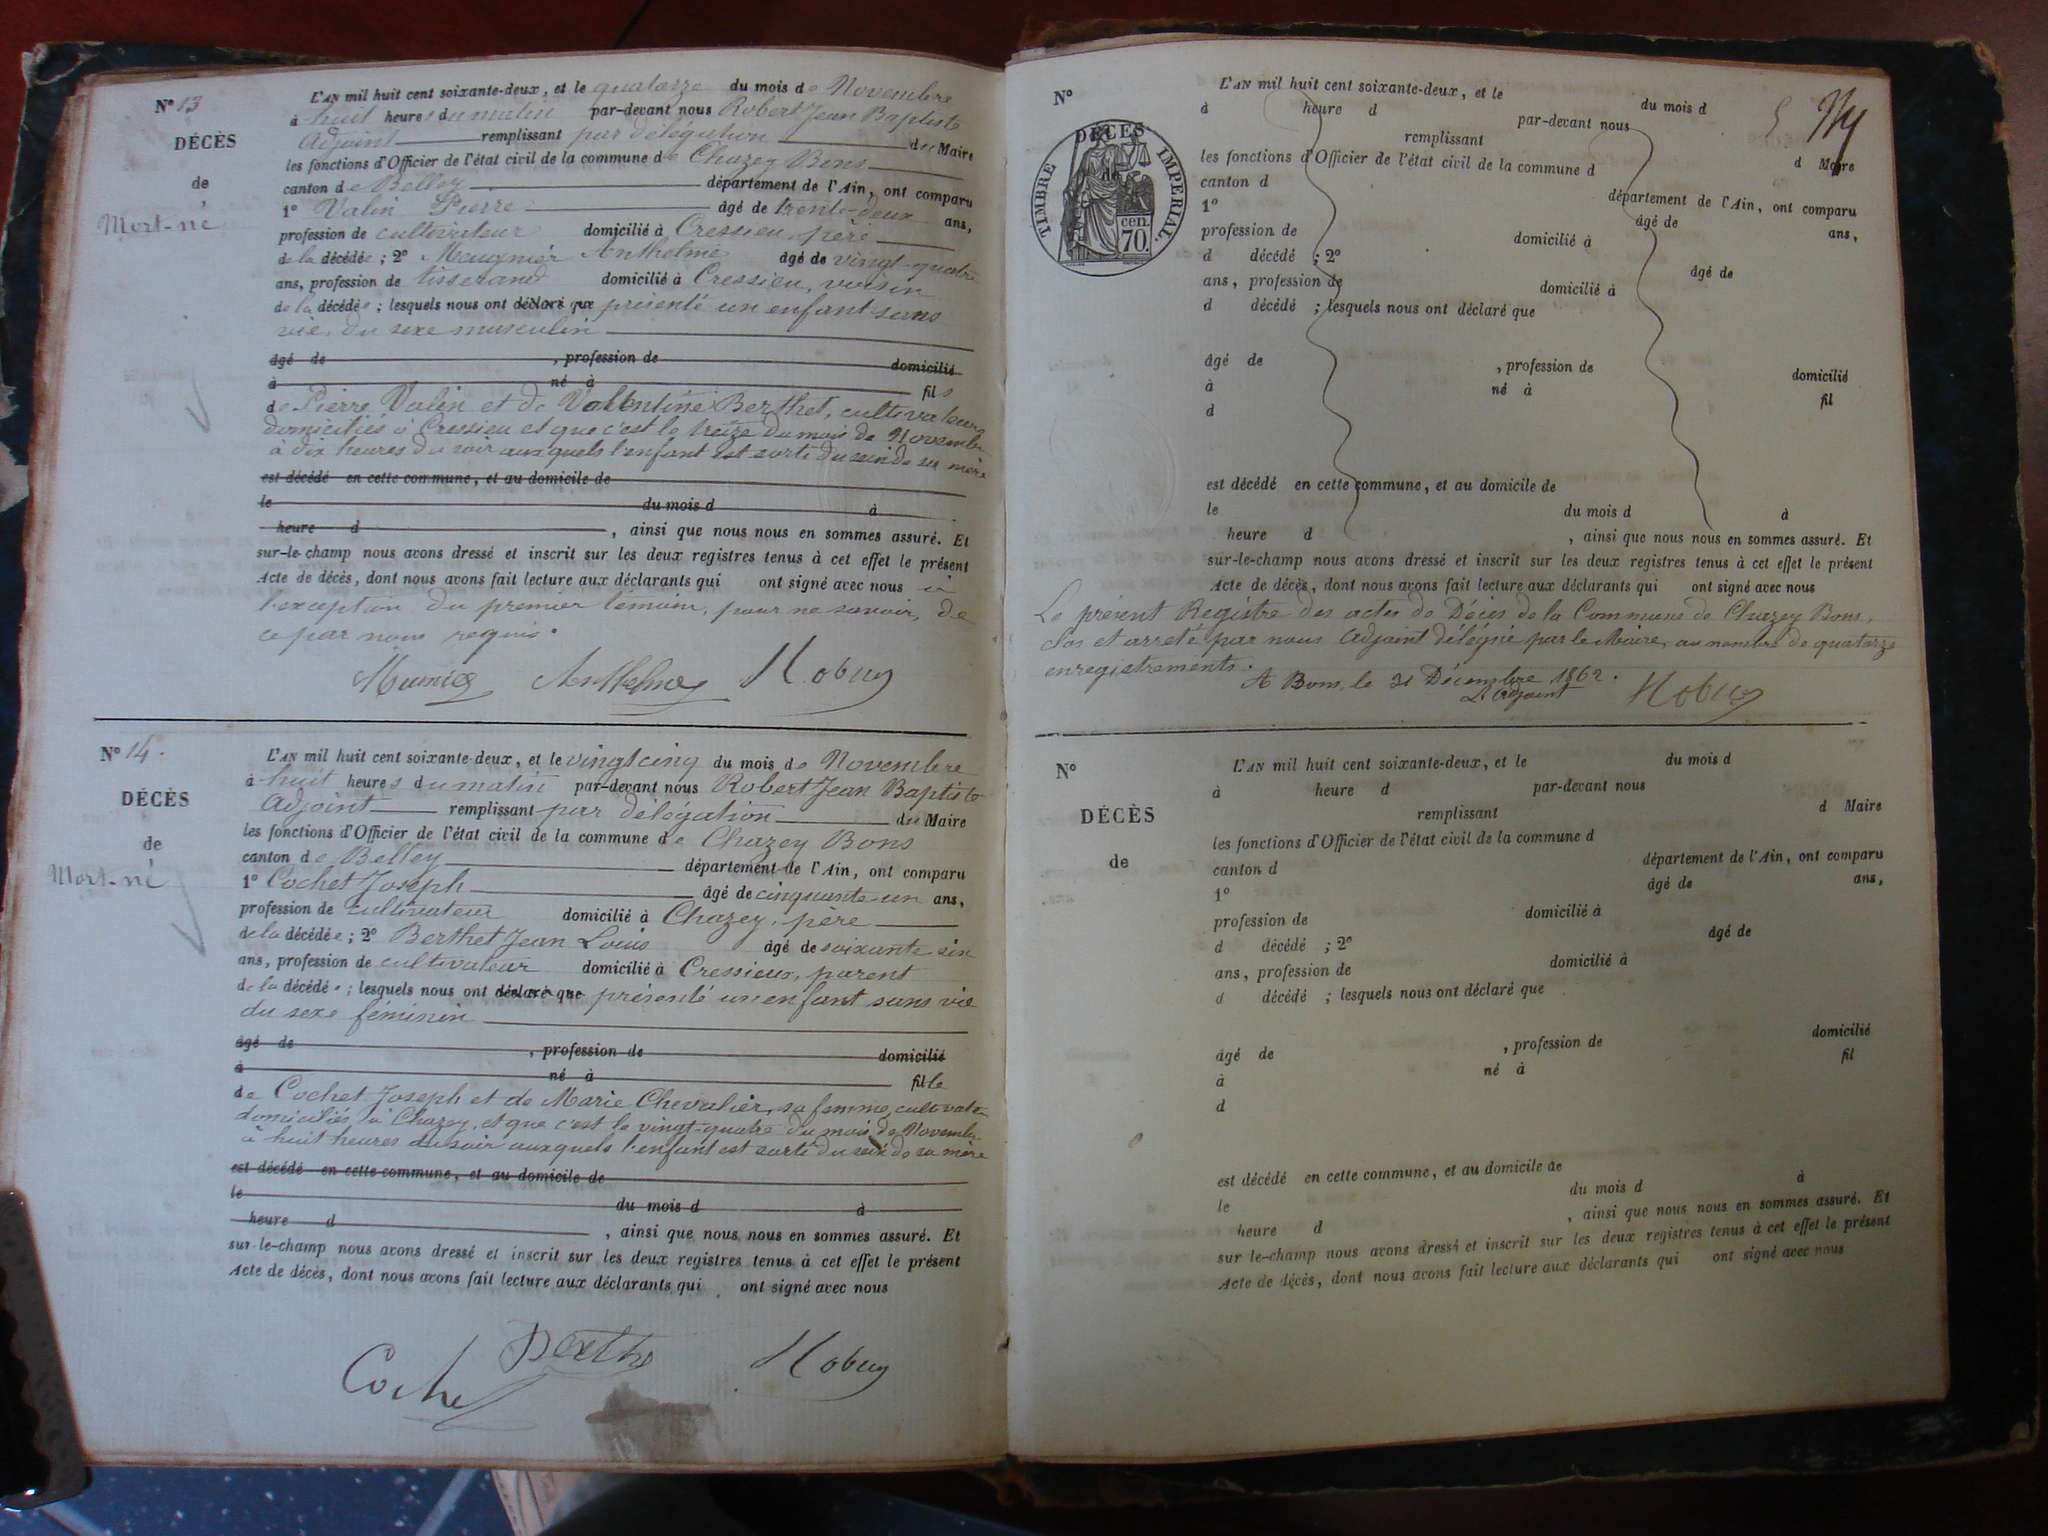 N° 13
DÉCÈS
de
Mort-né
L'AN mil huit cent soixante-deux, et le quatorze du mois de Novembre
à huit heures du matin par-devant nous Robert Jean Baptiste
Adjoint remplissant par délégation du Maire
les fonctions d'Officier de l'état civil de la commune de Chazey Bons
canton de Belley département de l'Ain, ont comparu
1° Valin Pierre âgé de trente-deux ans,
profession de cultivateur domicilié à Cressieu, père
de la décédée ; 2° Meugnier Anthelme âgé de vingt-quatre
ans, profession de tisserand domicilié à Cressieu, voisin
de la décédée ; lesquels nous ont déclaré que présenté un enfant sans
vie, du sexe masculin
âgé de , profession de domicilié
à né à fils
de Pierre Valin et de Valentine Berthet, cultivateurs
domiciliés à Cressieu et que c'est le treize du mois de Novembre
à dix heures du soir auxquels l'enfant est sorti du sein de sa mère
est décédé en cette commune, et au domicile de
le du mois d à
heure d , ainsi que nous nous en sommes assuré. Et
sur-le-champ nous avons dressé et inscrit sur les deux registres tenus à cet effet le présent
Acte de décès, dont nous avons fait lecture aux déclarants qui ont signé avec nous à
l'exception du premier témoin, pour ne savoir, de
ce par nous requis.
Anthelme
N° 14.
DÉCÈS
de
Mort-né
L'AN mil huit cent soixante-deux, et le vingt cinq du mois de Novembre
à huit heures du matin par-devant nous Robert Jean Baptiste
Adjoint remplissant par délégation du Maire
les fonctions d'Officier de l'état civil de la commune de Chazey Bons
canton de Belley département de l'Ain, ont comparu
1° Cochet Joseph âgé de cinquante un ans,
profession de cultivateur domicilié à Chazey, père
de la décédée ; 2° Berthet Jean Louis âgé de soixante six
ans, profession de cultivateur domicilié à Cressieux, parent
de la décédée ; lesquels nous ont déclaré que présenté un enfant sans vie
du sexe féminin
âgé de , profession de domicilié
à né à fille
de Cochet Joseph et de Marie Chevalier, sa femme, cultivate
domiciliés à Chazey, et que c'est le vingt-quatre du mois de Novembre
à huit heures du soir auxquels l'enfant est sorti du sein de sa mère
est décédé en cette commune, et au domicile de
le du mois d à
heure d , ainsi que nous nous en sommes assuré. Et
sur-le-champ nous avons dressé et inscrit sur les deux registres tenus à cet effet le présent
Acte de décès, dont nous avons fait lecture aux déclarants qui ont signé avec nous
Coche
N°
DÉCÈS
de
TIMBRE IMPÉRIAL.
70. cen.
L'AN mil huit cent soixante-deux, et le du mois d
à heure d par-devant nous
remplissant d Maire
les fonctions d'Officier de l'état civil de la commune d
canton d département de l'Ain, ont comparu
1° âgé de ans,
profession de domicilié à
d décédé ; 2° âgé de
ans, profession de domicilié à
d décédé ; lesquels nous ont déclaré que
âgé de , profession de domicilié
à né à fil
d
est décédé en cette commune, et au domicile de
le du mois d à
heure d , ainsi que nous nous en sommes assuré. Et
sur-le-champ nous avons dressé et inscrit sur les deux registres tenus à cet effet le présent
Acte de décès, dont nous avons fait lecture aux déclarants qui ont signé avec nous
Le présent Registre des actes de Décès de la Commune de Chazey Bons,
clos et arrêté par nous Adjoint délégué par le Maire, au nombre de quatorze
enregistrements.
A Bons, le 31 Décembre 1862.
L'Adjoint
N°
DÉCÈS
de
L'AN mil huit cent soixante-deux, et le du mois d
à heure d par-devant nous
remplissant d Maire
les fonctions d'Officier de l'état civil de la commune d
canton d département de l'Ain, ont comparu
1° âgé de ans,
profession de domicilié à
d décédé ; 2° âgé de
ans, profession de domicilié à
d décédé ; lesquels nous ont déclaré que
âgé de , profession de domicilié
à né à fil
d
est décédé en cette commune, et au domicile de
le du mois d à
heure d , ainsi que nous nous en sommes assuré. Et
sur le-champ nous avons dressé et inscrit sur les deux registres tenus à cet effet le présent
Acte de décès, dont nous avons fait lecture aux déclarants qui ont signé avec nous